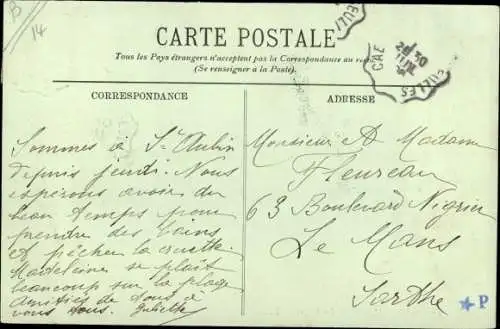 B
14
CARTE POSTALE
Tous les Pays étrangers n'acceptent pas la Correspondance au
(Se renseigner à la Poste)
CORRESPONDANCE
ADRESSE
Sommes à St Aubin
depuis jeudi. Nous
espérons avoir du
beau temps pour
prendre des bains
et pêcher la crevette.
Madeleine se plaît
beaucoup sur la plage
amitiés de tous à
vous tous. Juliette
Monsieur & Madame
Fleureau
63 Boulevard Négrier
Le Mans
Sarthe
CAE
30
JUIL
P